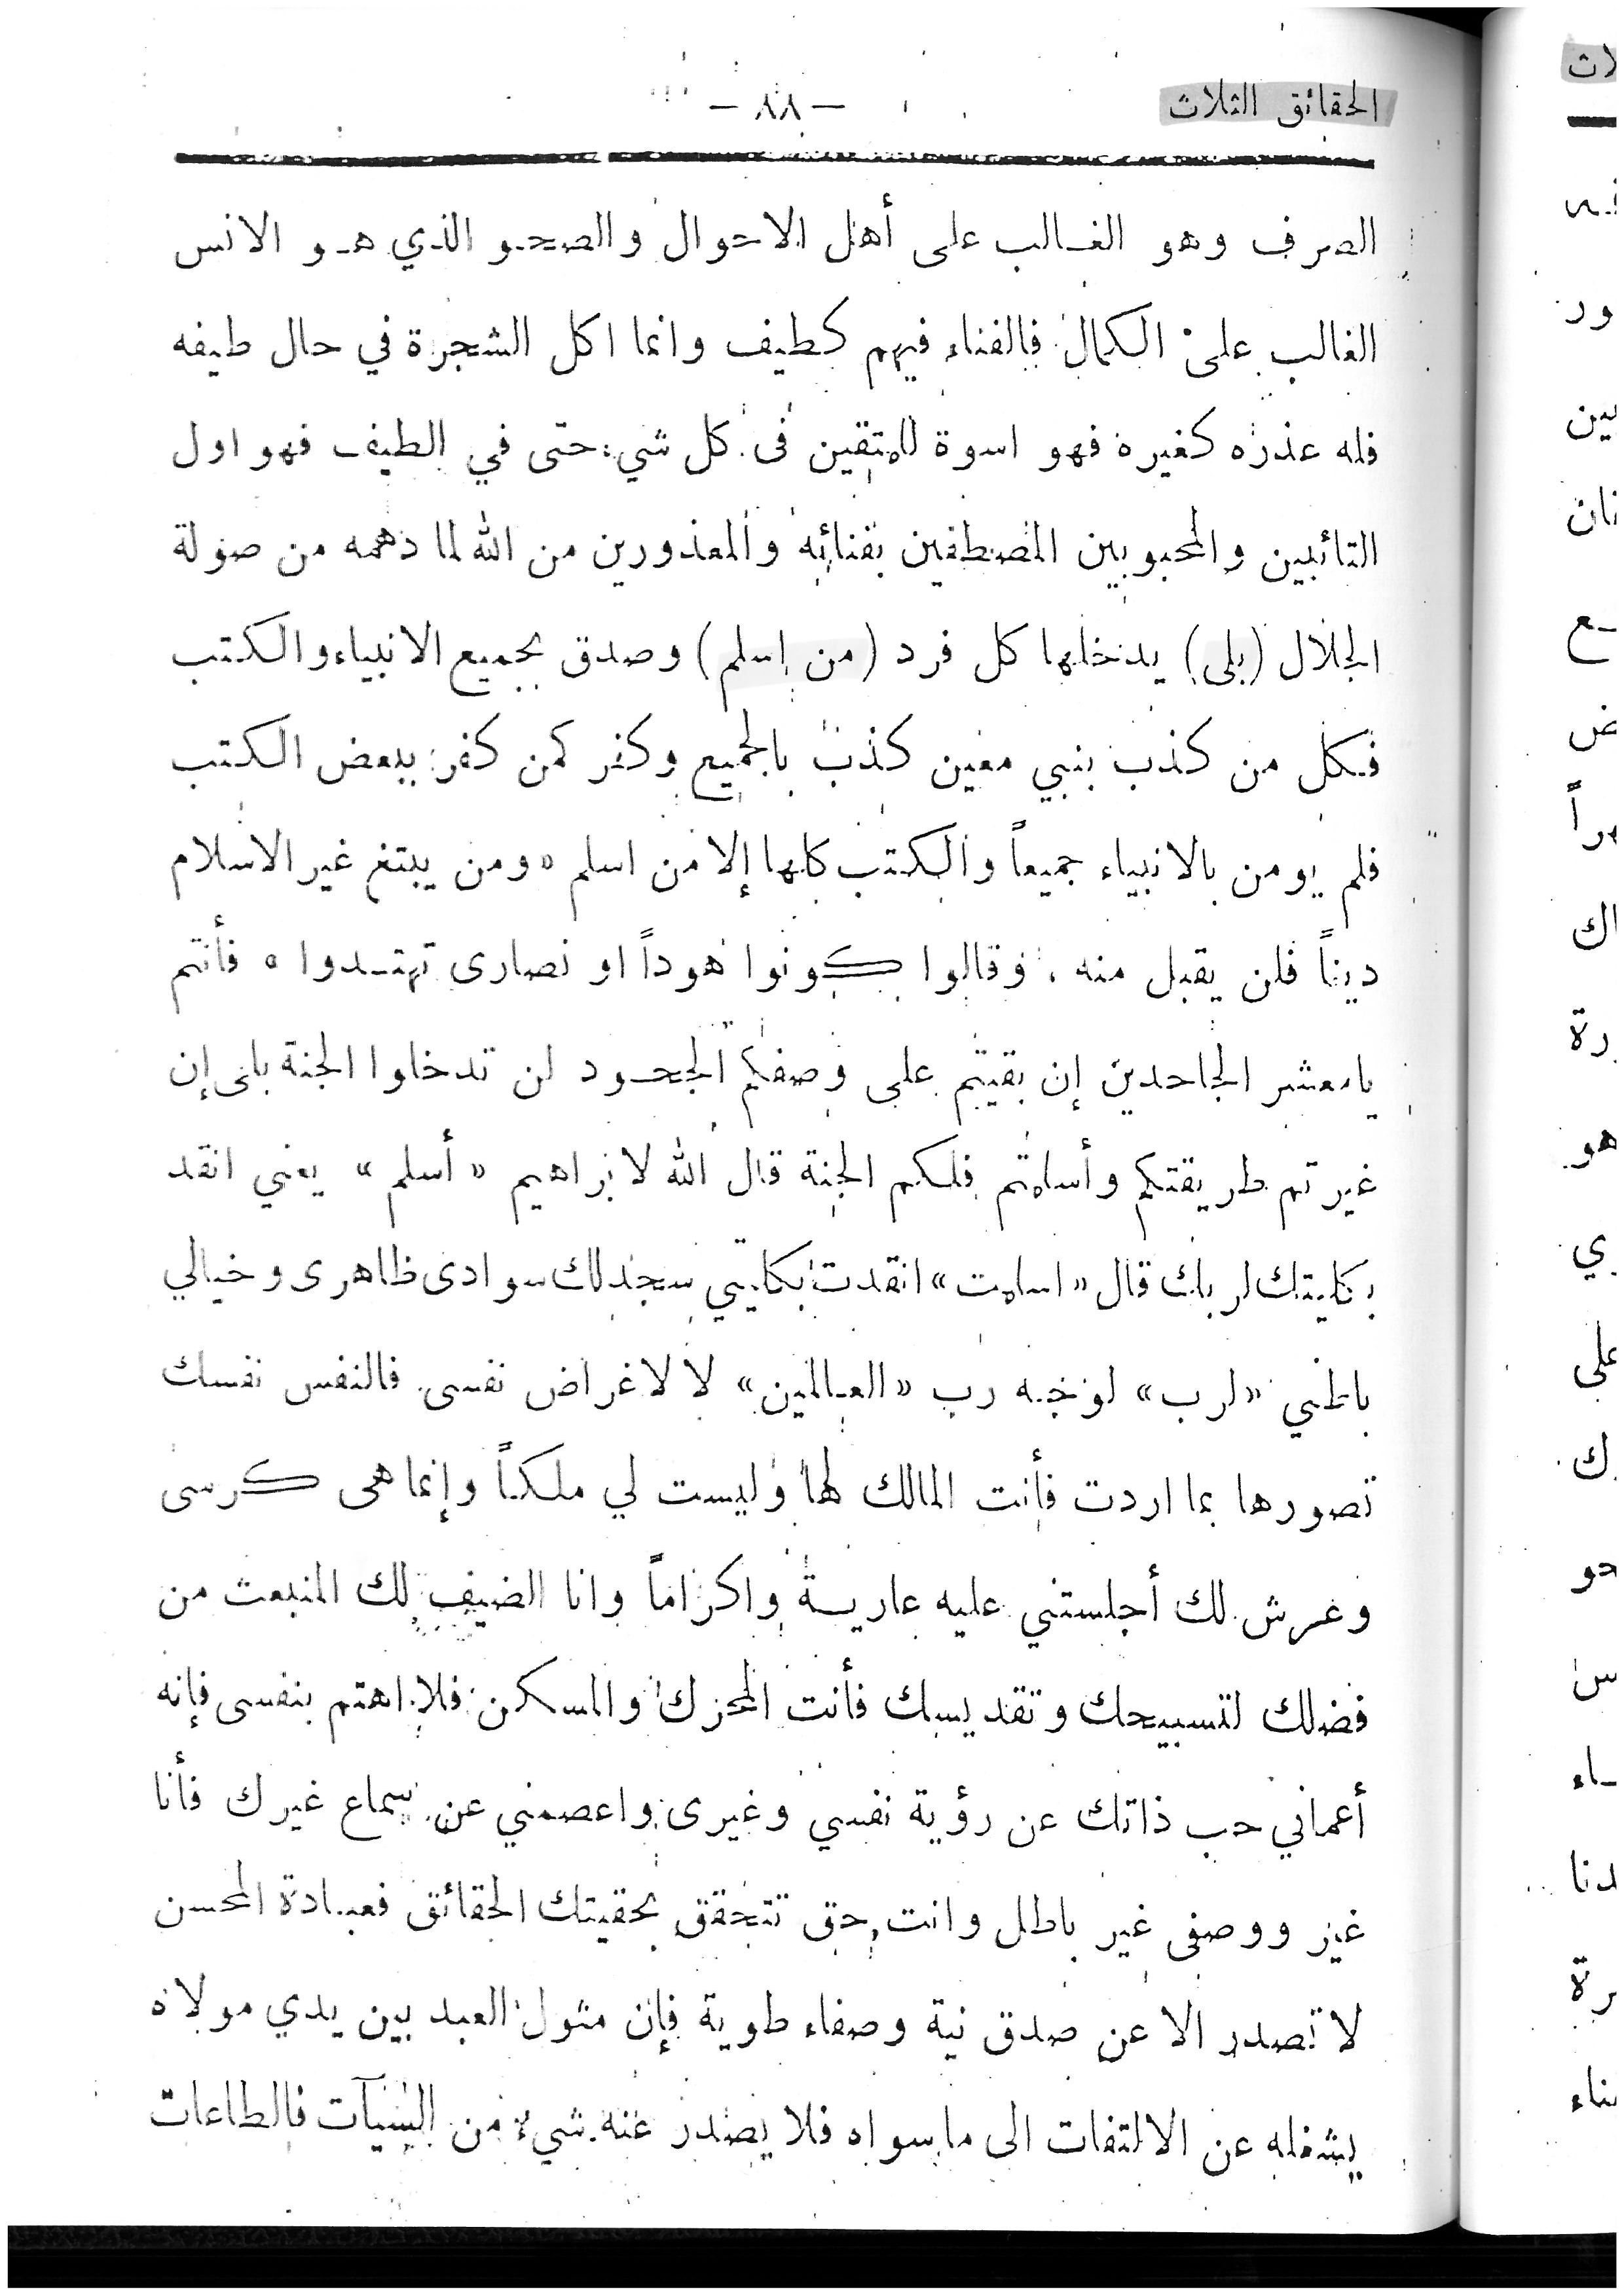 الحقائق الثلاث — ٨٨ —
الصرف وهو الغالب على أهل الاحوال والصحو الذي هو الانس
الغالب على الكمال فالفناء فيهم كطيف وانما اكل الشجرة في حال طيفه
فله عذره كغيره فهو اسوة للمتقين فى كل شيء حتى في الطيف فهو اول
التائبين والمحبوبين المصطفين بفنائه والمعذورين من الله لما دهمه من صولة
الجلال (بلى) يدخلها كل فرد (من اسلم) وصدق بجميع الانبياء والكتب
فكل من كذب بنبي معين كذب بالجميع وكفر كمن كفر ببعض الكتب
فلم يومن بالانبياء جميعاً والكتب كلها إلا من اسلم «ومن يبتغ غير الاسلام
ديناً فلن يقبل منه ، وقالوا كونوا هوداً او نصارى تهتدوا» فأنتم
يامعشر الجاحدين إن بقيتم على وصفكم الجحود لن تدخلوا الجنة بلى إن
غيرتم طريقتكم وأسلمتم فلكم الجنة قال الله لابراهيم «أسلم» يعني انقد
بكليتك لربك قال «اسلمت» انقدت بكليتي سجد لك سوادى ظاهرى وخيالي
باطني «لرب» لوجه رب «العالمين» لا لاغراض نفسى فالنفس نفسك
تصورها بما اردت فأنت المالك لها وليست لي ملكاً وإنما هى كرسى
وعرش لك أجلستني عليه عارية واكراماً وانا الضيف لك المنبعث من
فضلك لتسبيحك وتقديسك فأنت المحرك والمسكن فلا اهتم بنفسى فإنه
أعماني حب ذاتك عن رؤية نفسي وغيرى واعصمني عن سماع غيرك فأنا
غير ووصفى غير باطل وانت حق تتحقق بحقيتك الحقائق فعبادة المحسن
لا تصدر الا عن صدق نية وصفاء طوية فإن مثول العبد بين يدي مولاه
يشغله عن الالتفات الى ما سواه فلا يصدر عنه شيء من السيآت فالطاعات